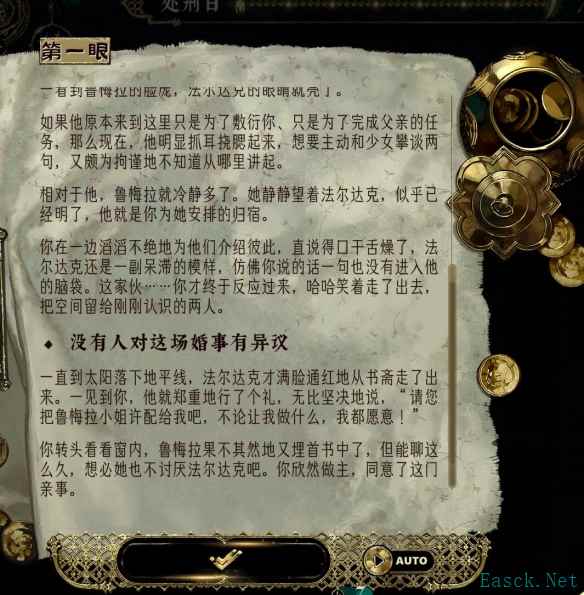 处刑日
第一眼
一看到鲁梅拉的脸庞，法尔达克的眼睛就亮了。
如果他原本来到这里只是为了敷衍你、只是为了完成父亲的任
务，那么现在，他明显抓耳挠腮起来，想要主动和少女攀谈两
句，又颇为拘谨地不知道从哪里讲起。
相对于他，鲁梅拉就冷静多了。她静静望着法尔达克，似乎已
经明了，他就是你为她安排的归宿。
你在一边滔滔不绝地为他们介绍彼此，直说得口干舌燥了，法
尔达克还是一副呆滞的模样，仿佛你说的话一句也没有进入他
的脑袋。这家伙……你才终于反应过来，哈哈笑着走了出去，
把空间留给刚刚认识的两人。
◆ 没有人对这场婚事有异议
一直到太阳落下地平线，法尔达克才满脸通红地从书斋走了出
来。一见到你，他就郑重地行了个礼，无比坚决地说，“请您
把鲁梅拉小姐许配给我吧，不论让我做什么，我都愿意！”
你转头看看窗内，鲁梅拉果不其然地又埋首书中了，但能聊这
么久，想必她也不讨厌法尔达克吧。你欣然做主，同意了这门
亲事。
AUTO
Easck.Net